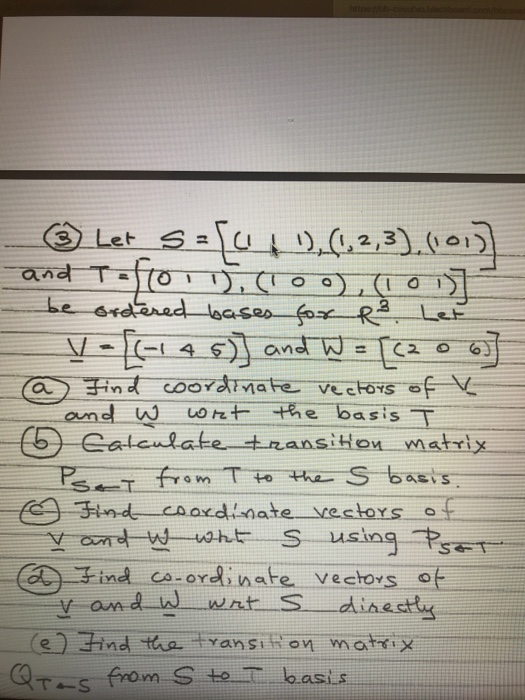 ③ Let S = [(1 1 1), (1, 2, 3), (1 0 1)]
and T = [(0 1 1), (1 0 0), (1 0 1)]
be ordered bases for R³. Let
V = [(-1 4 5)] and W = [(2 0 6)]
ⓐ Find coordinate vectors of V
and W wrt the basis T
ⓑ Calculate transition matrix
P S←T from T to the S basis.
ⓒ Find coordinate vectors of
V and W wht S using P S←T
ⓓ Find co-ordinate vectors of
V and W wrt S directly
(e) Find the transition matrix
Q T←S from S to T basis